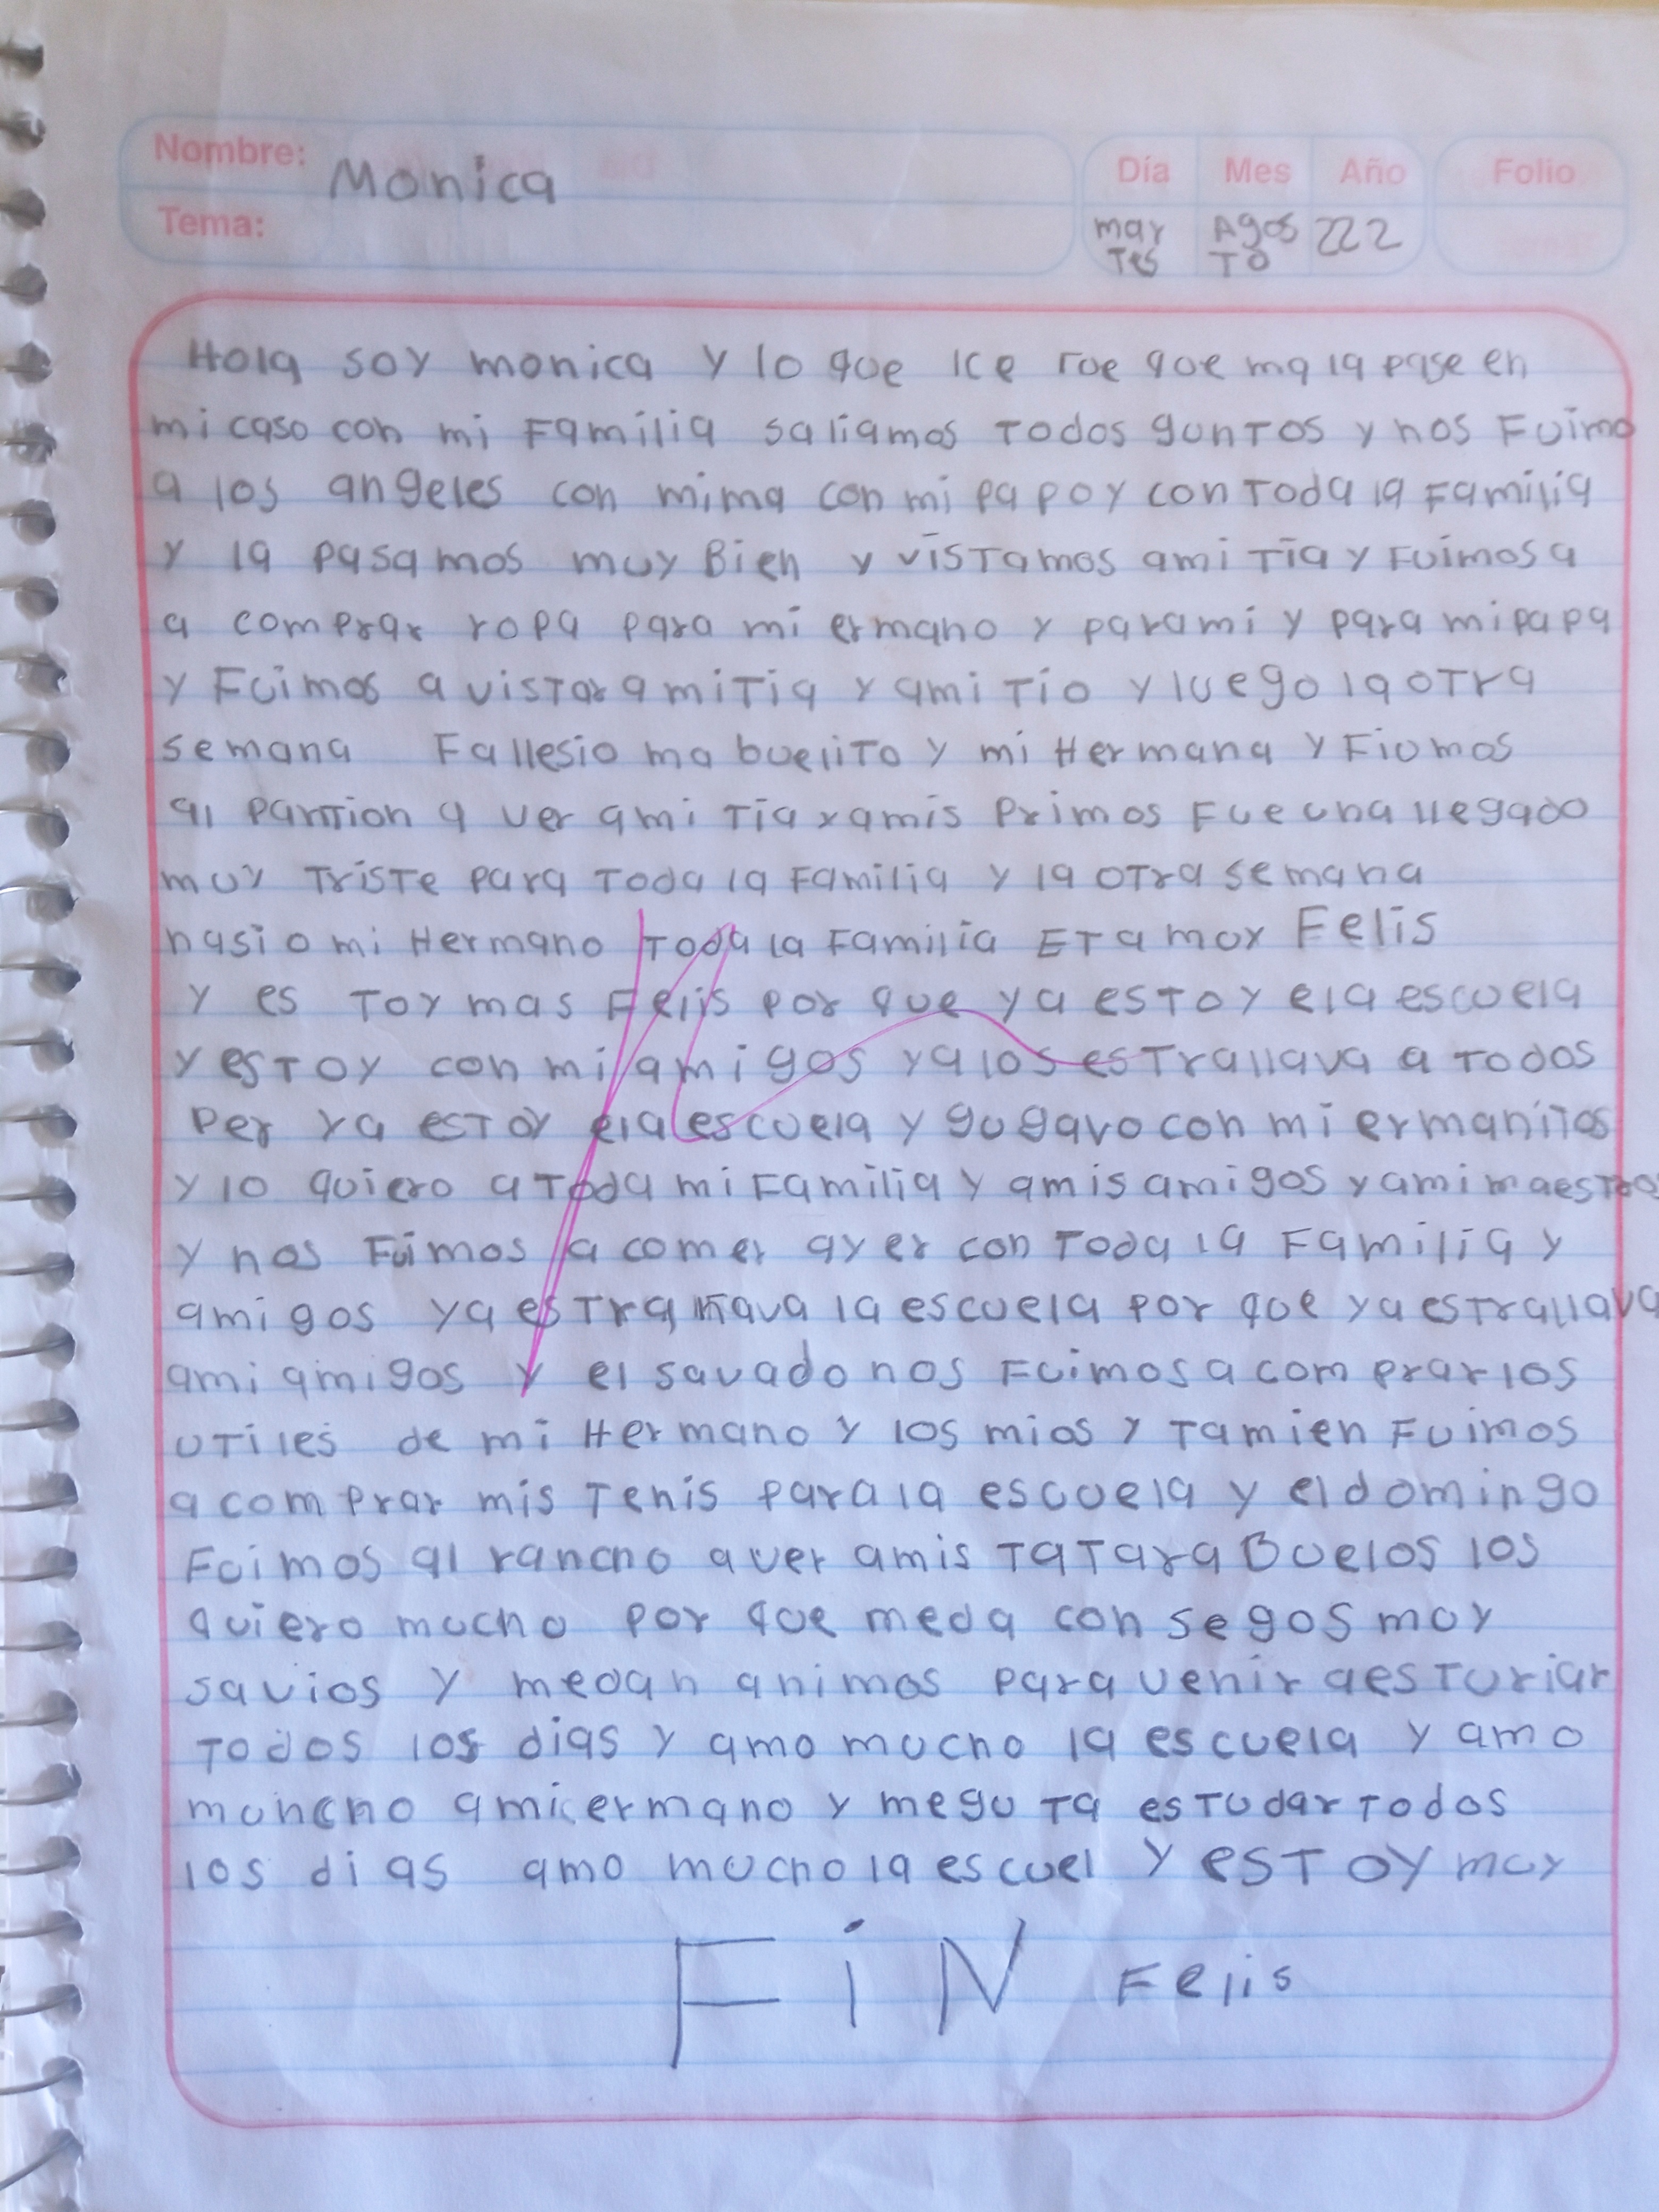 Nombre: Monica
Día Mes Año Folio
Tema:
mar Agos 222
Tes To
Hola soy monica y lo que ice rue que ma la pase en
mi caso con mi Familia saliamos Todos gunTos y nos Fuimo
a los angeles con mima con mi papo y con Toda la Familia
y la pasamos muy Bien y visTamos ami Tia y Fuimos a
a comprar ropa para mi ermano y parami y para mi papa
y Fuimos a vistar a mi Tia y ami Tio y luego la oTra
semana Fallesio ma buelito y mi Hermana y Fiumos
al panTion a ver ami Tia y amis Primos Fue una llegado
muy TrisTe para Toda la Familia y la oTra semana
nasio mi Hermano Toda la Familia ETa muy Felis
y es Toy mas Felis por que ya esToy ela escuela
y esToy con mi amigos ya los esTrallava a Todos
Per ya esToy ela escuela y gugavo con mi ermanitos
y lo quiero a Toda mi Familia y amis amigos y ami maesTros
y nos Fuimos a comer ayer con Toda la Familia y
amigos ya la escuela por que ya esTrallava
ami amigos y el savado nos Fuimos a comprar los
uTiles de mi Hermano y los mios y Tamien Fuimos
a comprar mis Tenis para la escuela y el domingo
Fuimos al rancho a ver amis TaTara Buelos los
quiero mucho por que meda con segos muy
savios y medan animos para venir a esTuriar
Todos los dias y amo mucho la escuela y amo
muncho ami ermano y megu Ta esTudar Todos
los dias amo mucho la escuel y esToy muy
FiN Felis